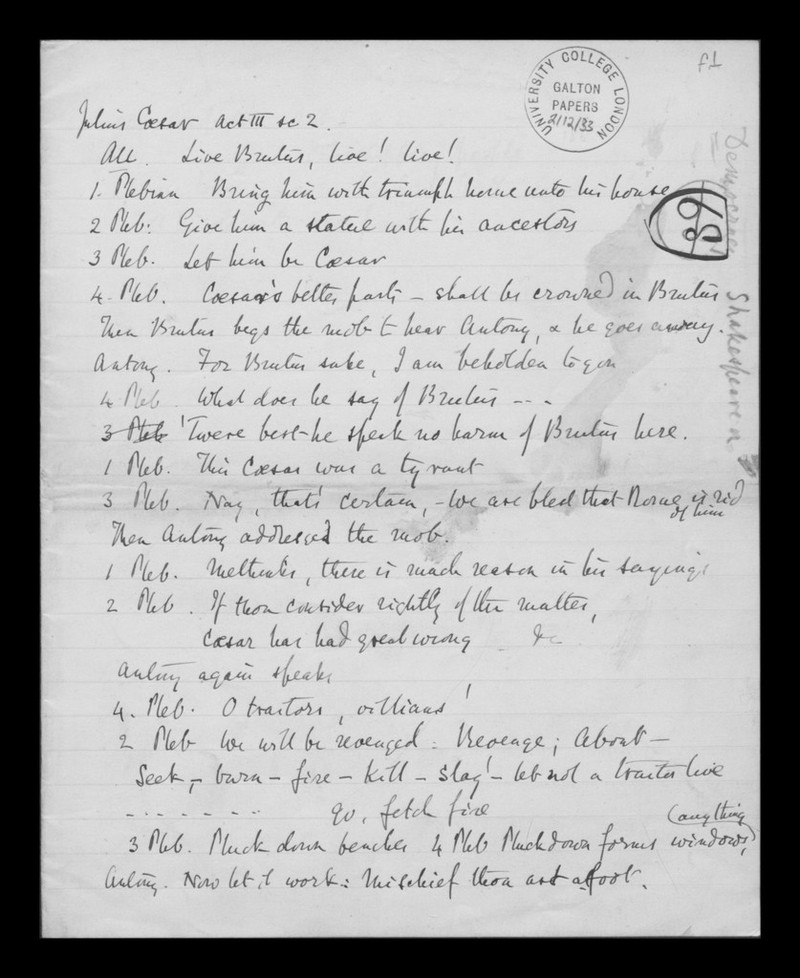 f1
UNIVERSITY COLLEGE LONDON
GALTON
PAPERS
2/12/33
Democracy
Shakespeare on
89
Julius Cæsar Act III sc 2.
All. Live Brutus, live! live!
1. Plebian Bring him with triumph home unto his house
2 Pleb: Give him a statue with his ancestors
3 Pleb. Let him be Cæsar
4. Pleb. Cæsar's better parts – shall be crowned in Brutus
Then Brutus begs the mob to hear Antony, & he goes away.
Antony. For Brutus sake, I am beholden to you
4 Pleb. What does he say of Brutus - - -
3 Pleb 'Twere best he speak no harm of Brutus here.
1 Pleb. This Cæsar was a tyrant
3 Pleb. Nay, that's certain, – we are bled that Rome is rid
of him
Then Antony addresses the mob.
1 Pleb. Methinks, there is much reason in his sayings
2 Pleb. If thou consider rightly of the matter,
Cæsar has had great wrong &c
Antony again speaks
4. Pleb. O traitors, villians!
2 Pleb We will be revenged: Revenge; About –
Seek, – burn – fire – kill – slay! – let not a traitor live
- - - - - - - go, fetch fire
3 Pleb. Pluck down benches 4 Pleb Pluck down forms windows,
(anything)
Antony. Now let it work: Mischief thou art afoot.